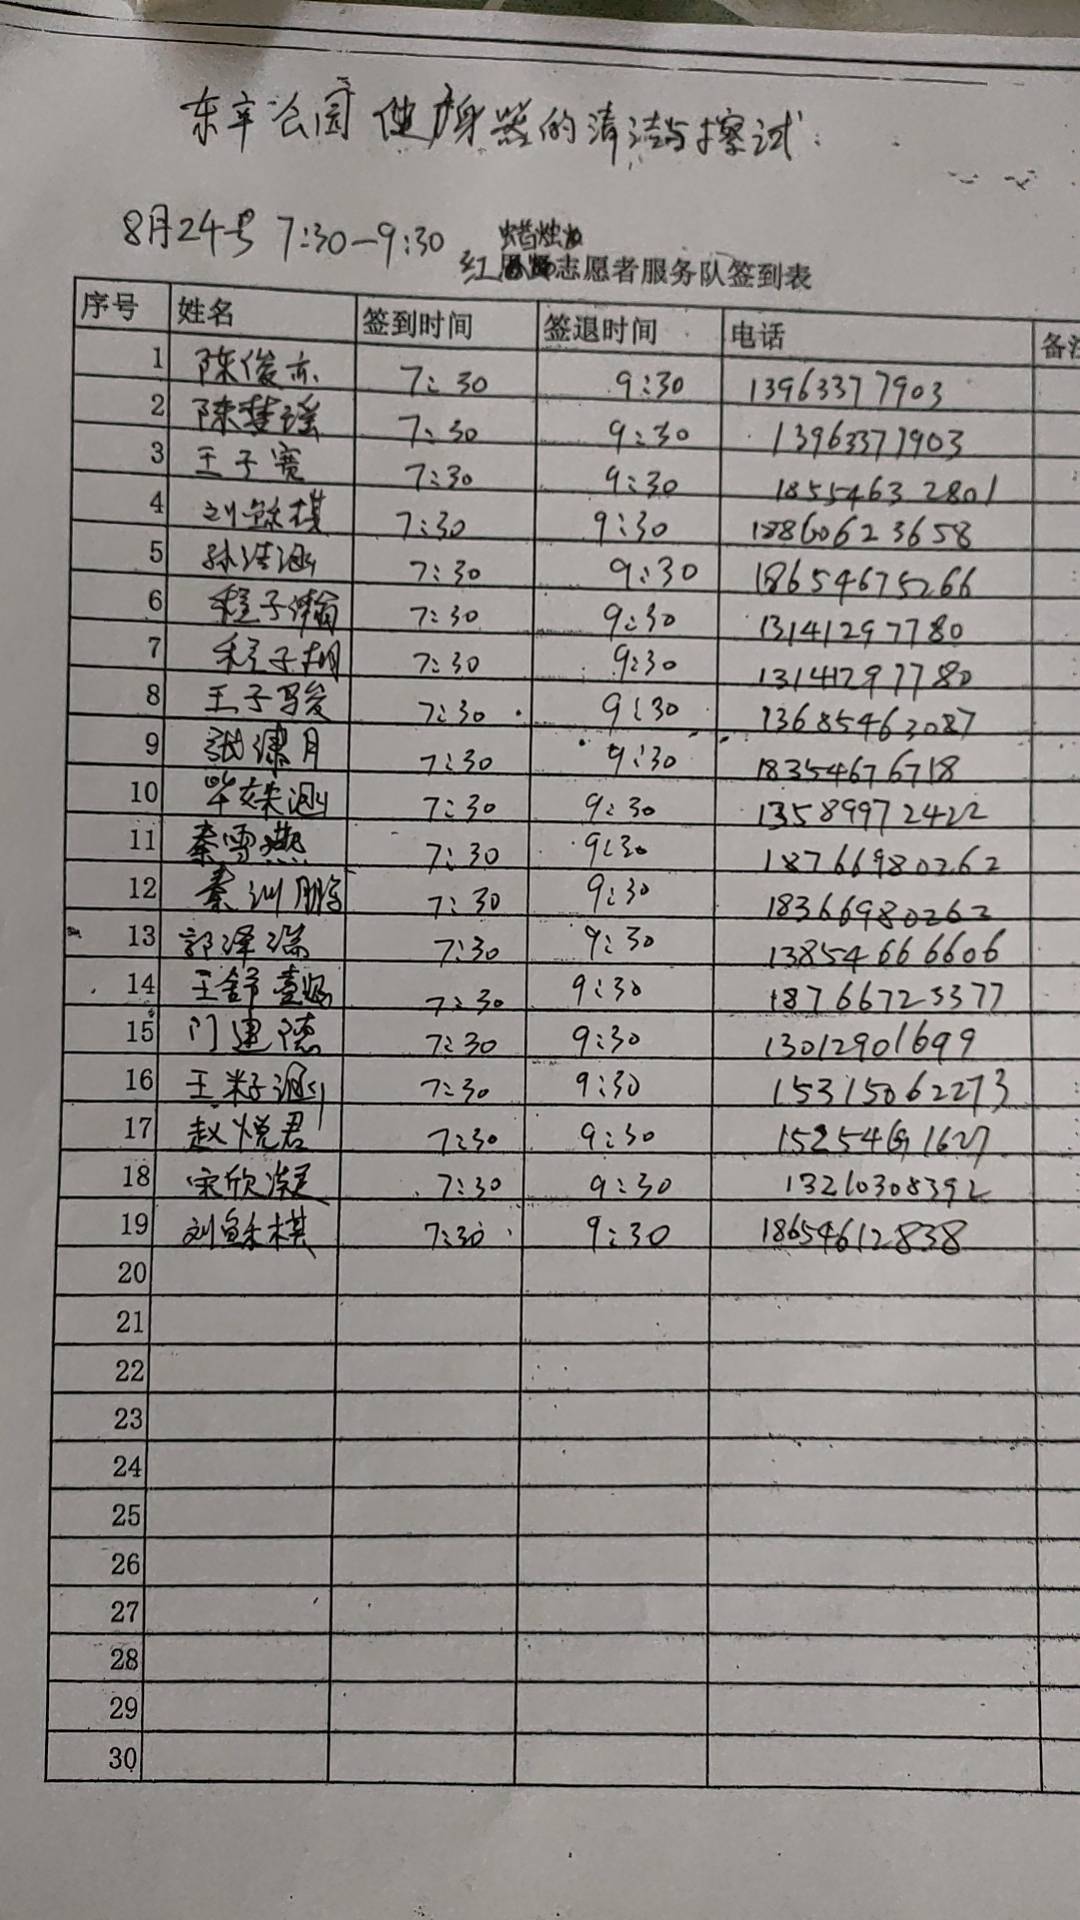 东辛公园健身器的清洁与擦试:
8月24号 7:30—9:30
蜡烛
红志愿者服务队签到表
序号 姓名 签到时间 签退时间 电话 备注
1 陈俊亦 7:30 9:30 13963377903
2 陈梦瑶 7:30 9:30 13963377903
3 王子赛 7:30 9:30 18554632801
4 刘稣棋 7:30 9:30 18860623658
5 孙浩涵 7:30 9:30 18654675266
6 程子 7:30 9:30 13141297780
7 程子栩 7:30 9:30 13141297780
8 王子骏 7:30 9:30 13685463087
9 张潇月 7:30 9:30 18354676718
10 毕涵 7:30 9:30 13589972422
11 秦雪燕 7:30 9:30 18766980262
12 秦训鹏 7:30 9:30 18366980262
13 郭泽瑞 7:30 9:30 13854666606
14 王舒 7:30 9:30 18766723377
15 门建德 7:30 9:30 13012901699
16 王籽涵 7:30 9:30 15315062273
17 赵悦君 7:30 9:30
18 宋欣凝 7:30 9:30 13210308392
19 刘稣棋 7:30 9:30 18654612838
20
21
22
23
24
25
26
27
28
29
30